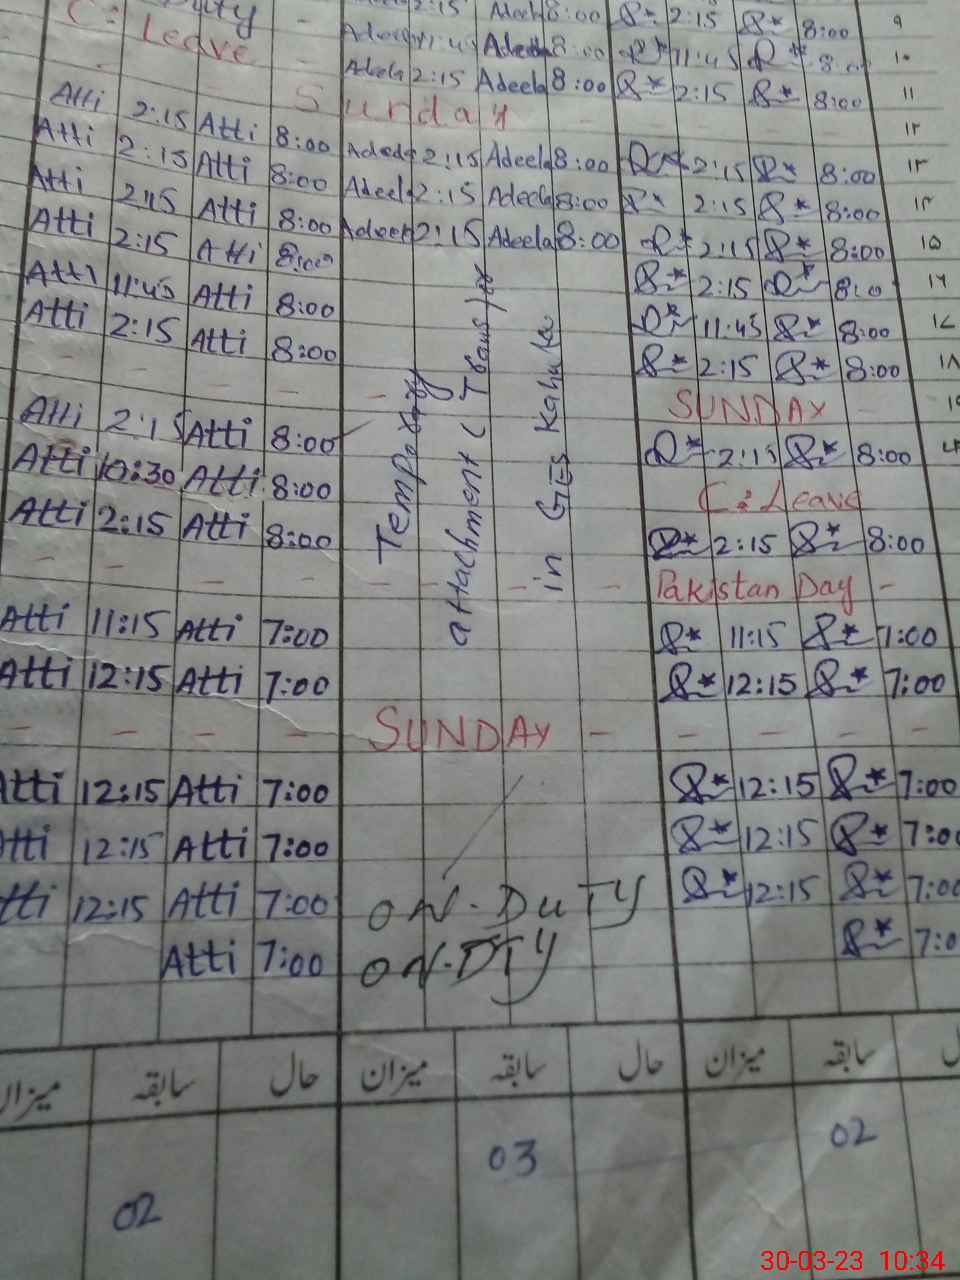 Duty 2:15 Adeela 8:00 2:15 8:00 ۹
C: Leave - Adeela 11:45 Adeela 8:00 11:45 8:00 ۱۰
- Adeela 2:15 Adeela 8:00 2:15 8:00 ۱۱
Sunday - - - - ۱۲
Atti 2:15 Atti 8:00 Adeela 2:15 Adeela 8:00 2:15 8:00 ۱۳
Atti 2:15 Atti 8:00 Adeela 2:15 Adeela 8:00 2:15 8:00 ۱۴
Atti 2:15 Atti 8:00 Adeela 2:15 Adeela 8:00 2:15 8:00 ۱۵
Atti 2:15 Atti 8:00 2:15 8:00 ۱۶
Atti 11:45 Atti 8:00 11:45 8:00 ۱۷
Atti 2:15 Atti 8:00 2:15 8:00 ۱۸
- - - - - SUNDAY - ۱۹
Atti 2:15 Atti 8:00 2:15 8:00
Atti 10:30 Atti 8:00 C: Leave
Atti 2:15 Atti 8:00 2:15 8:00
- - - - - - Pakistan Day -
Atti 11:15 Atti 7:00 11:15 7:00
Atti 12:15 Atti 7:00 12:15 7:00
Temporary
attachment (Transfer
in GGES Kahuta
- - - - SUNDAY - - - - -
Atti 12:15 Atti 7:00 12:15 7:00
Atti 12:15 Atti 7:00 12:15 7:00
Atti 12:15 Atti 7:00 ON-DUTY 12:15 7:00
Atti 7:00 ON-DTY 7:0
حال سابقہ میزان حال سابقہ میزان حال سابقہ میزان
02 03 02
30-03-23 10:34